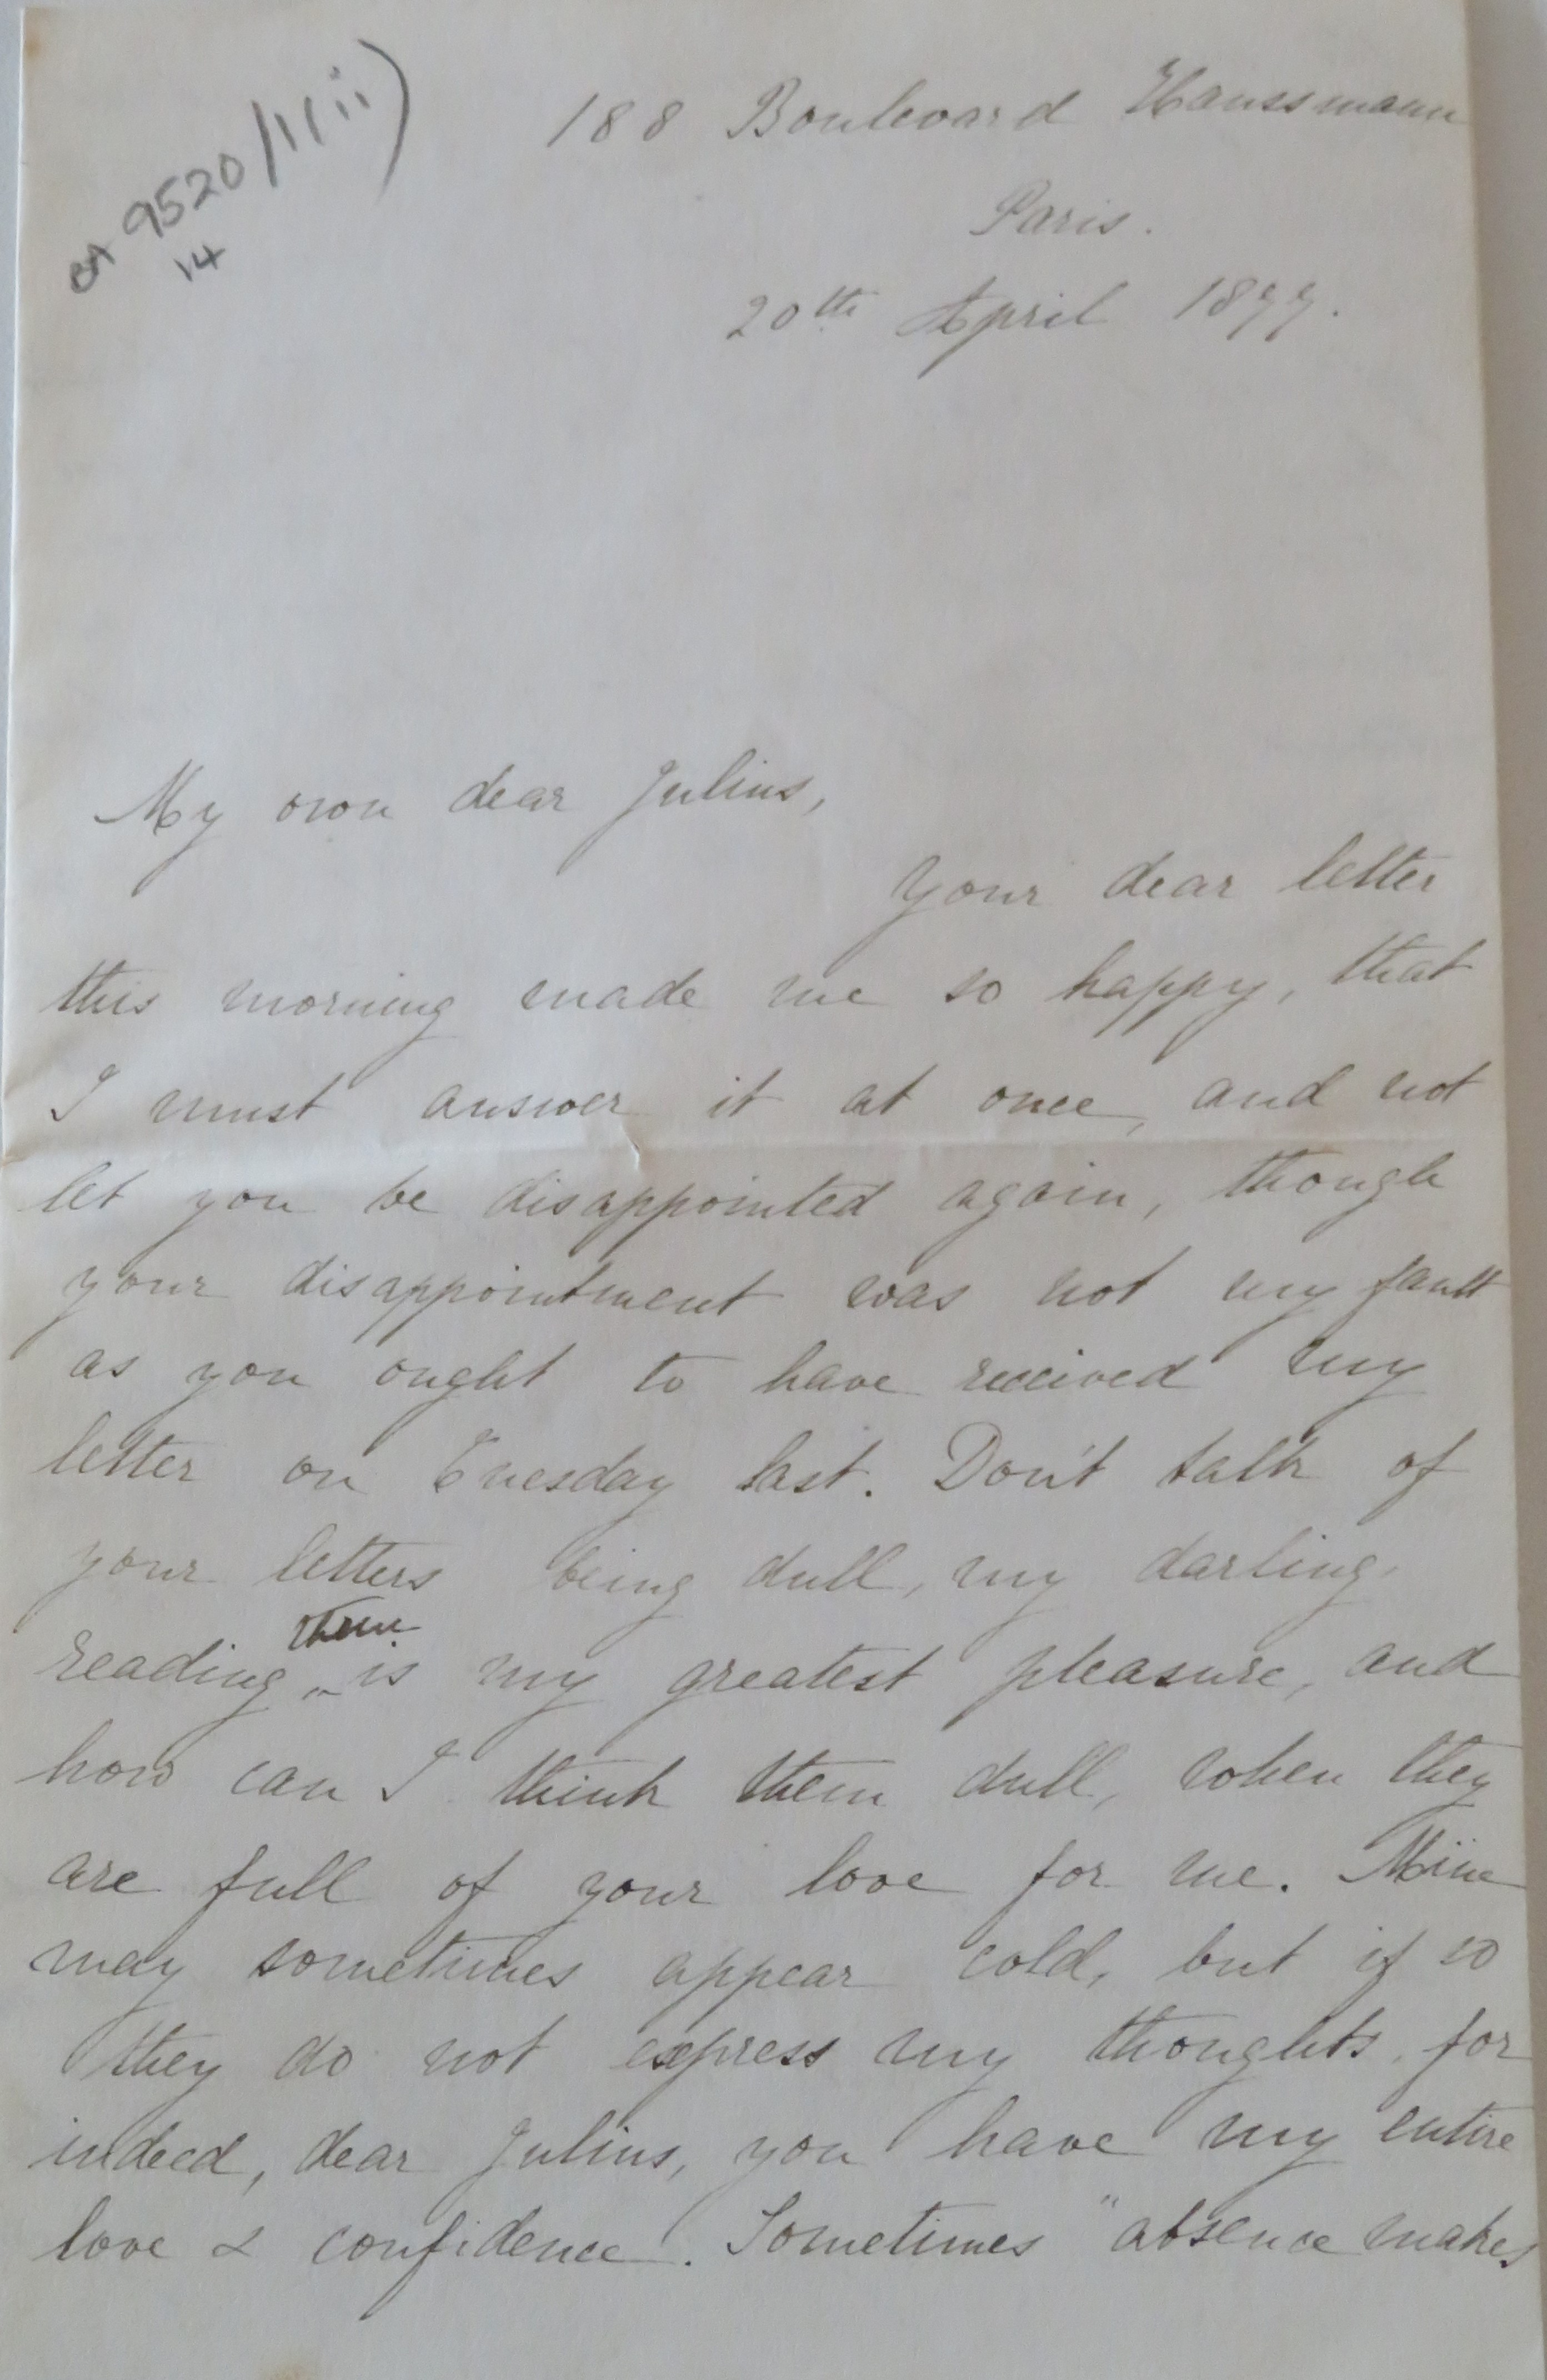 9520/1(ii)
14
188 Boulevard Haussmann
Paris.
20th April 1877.
My own dear Julius,
Your dear letter
this morning made me so happy, that
I must answer it at once, and not
let you be disappointed again, though
your disappointment was not my fault
as you ought to have received my
letter on Tuesday last. Don't talk of
your letters being dull, my darling,
reading them is my greatest pleasure, and
how can I think them dull, when they
are full of your love for me. Mine
may sometimes appear cold, but if so
they do not express my thoughts, for
indeed, dear Julius, you have my entire
love & confidence. Sometimes "absence makes